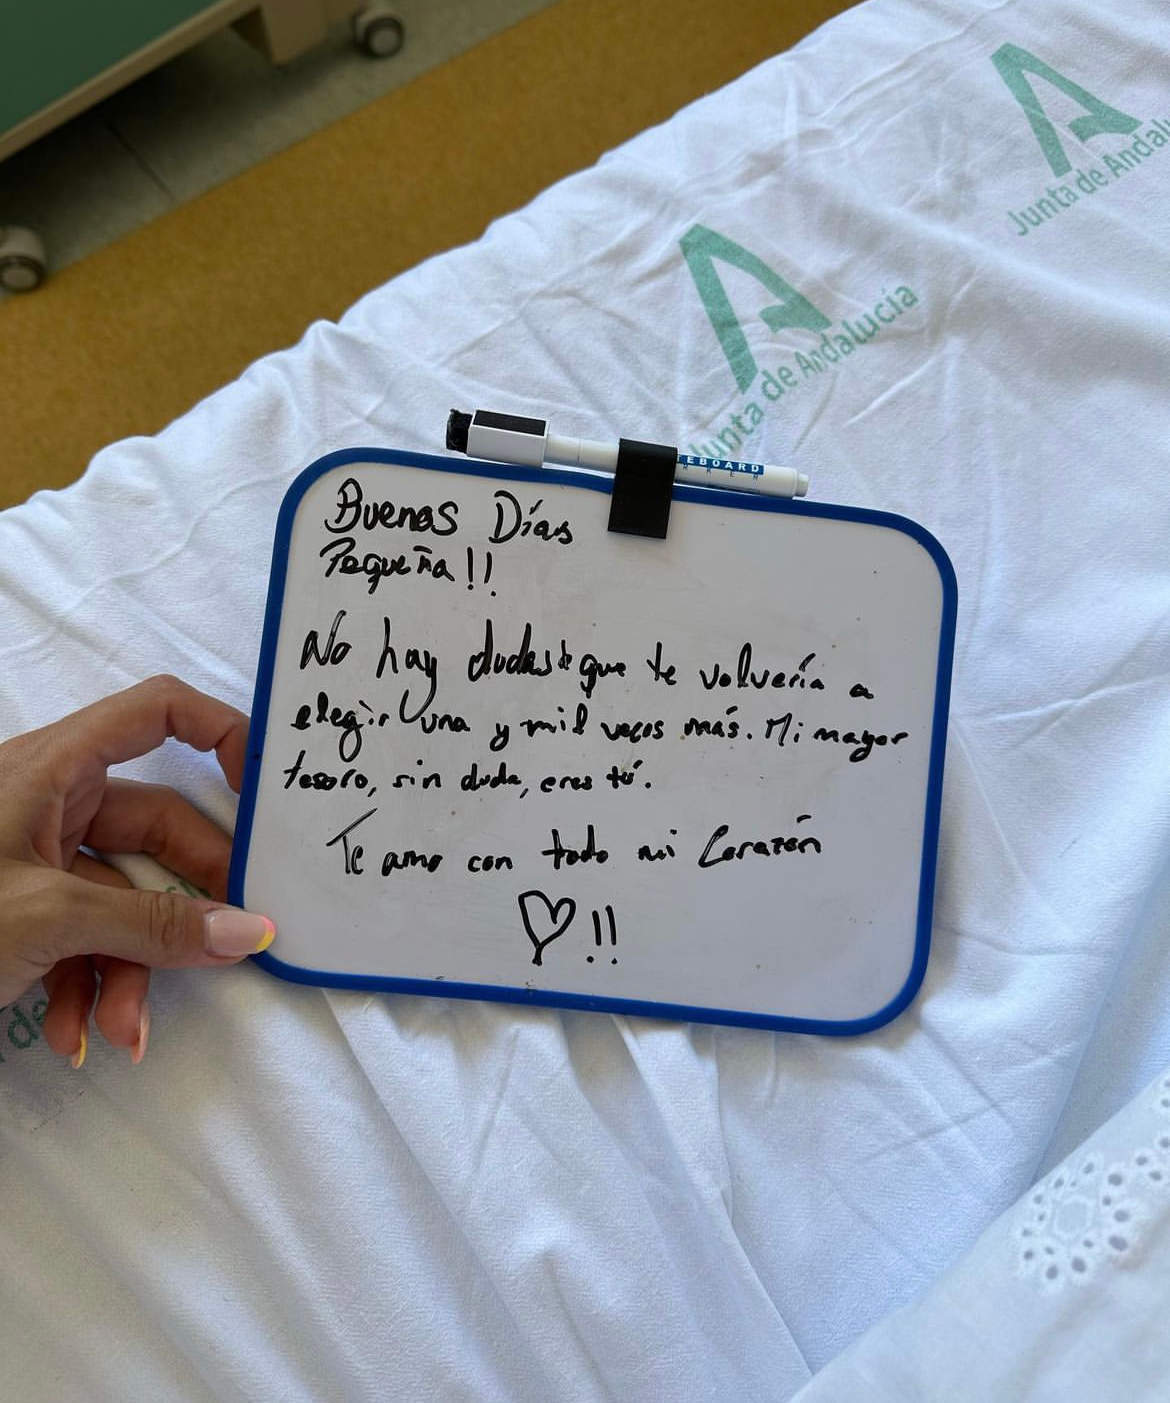 Junta de Andalu
Junta de Andalucía
TEBOARD
Buenos Días
Pequeña!!
No hay dudas de que te volvería a
elegir una y mil veces más. Mi mayor
tesoro, sin duda, eres tú.
Te amo con todo mi Corazón
♡!!
de